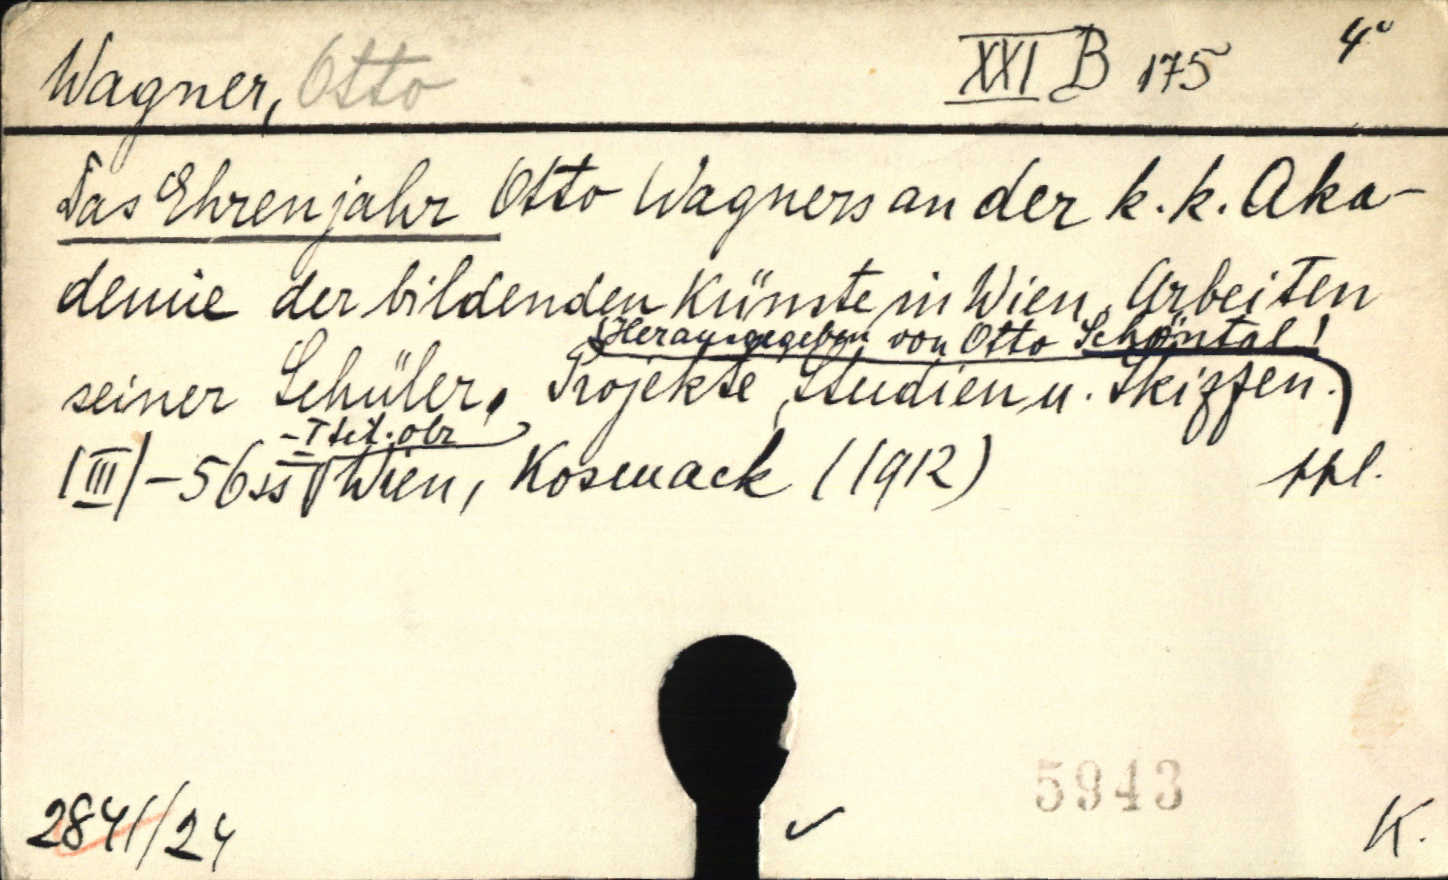 Wagner, Otto XXI B 175 4°
Das Ehrenjahr Otto Wagners an der k. k. Aka-
demie der bildenden Künste in Wien, Arbeiten
Herausgegeben von Otto Schöntal!
seiner Schüler. Projekte, Studien u. Skizzen.
- I tit. obr
(III) - 56 ss Wien, Kosmack (1912) ppl.
5943
2841/24 K.